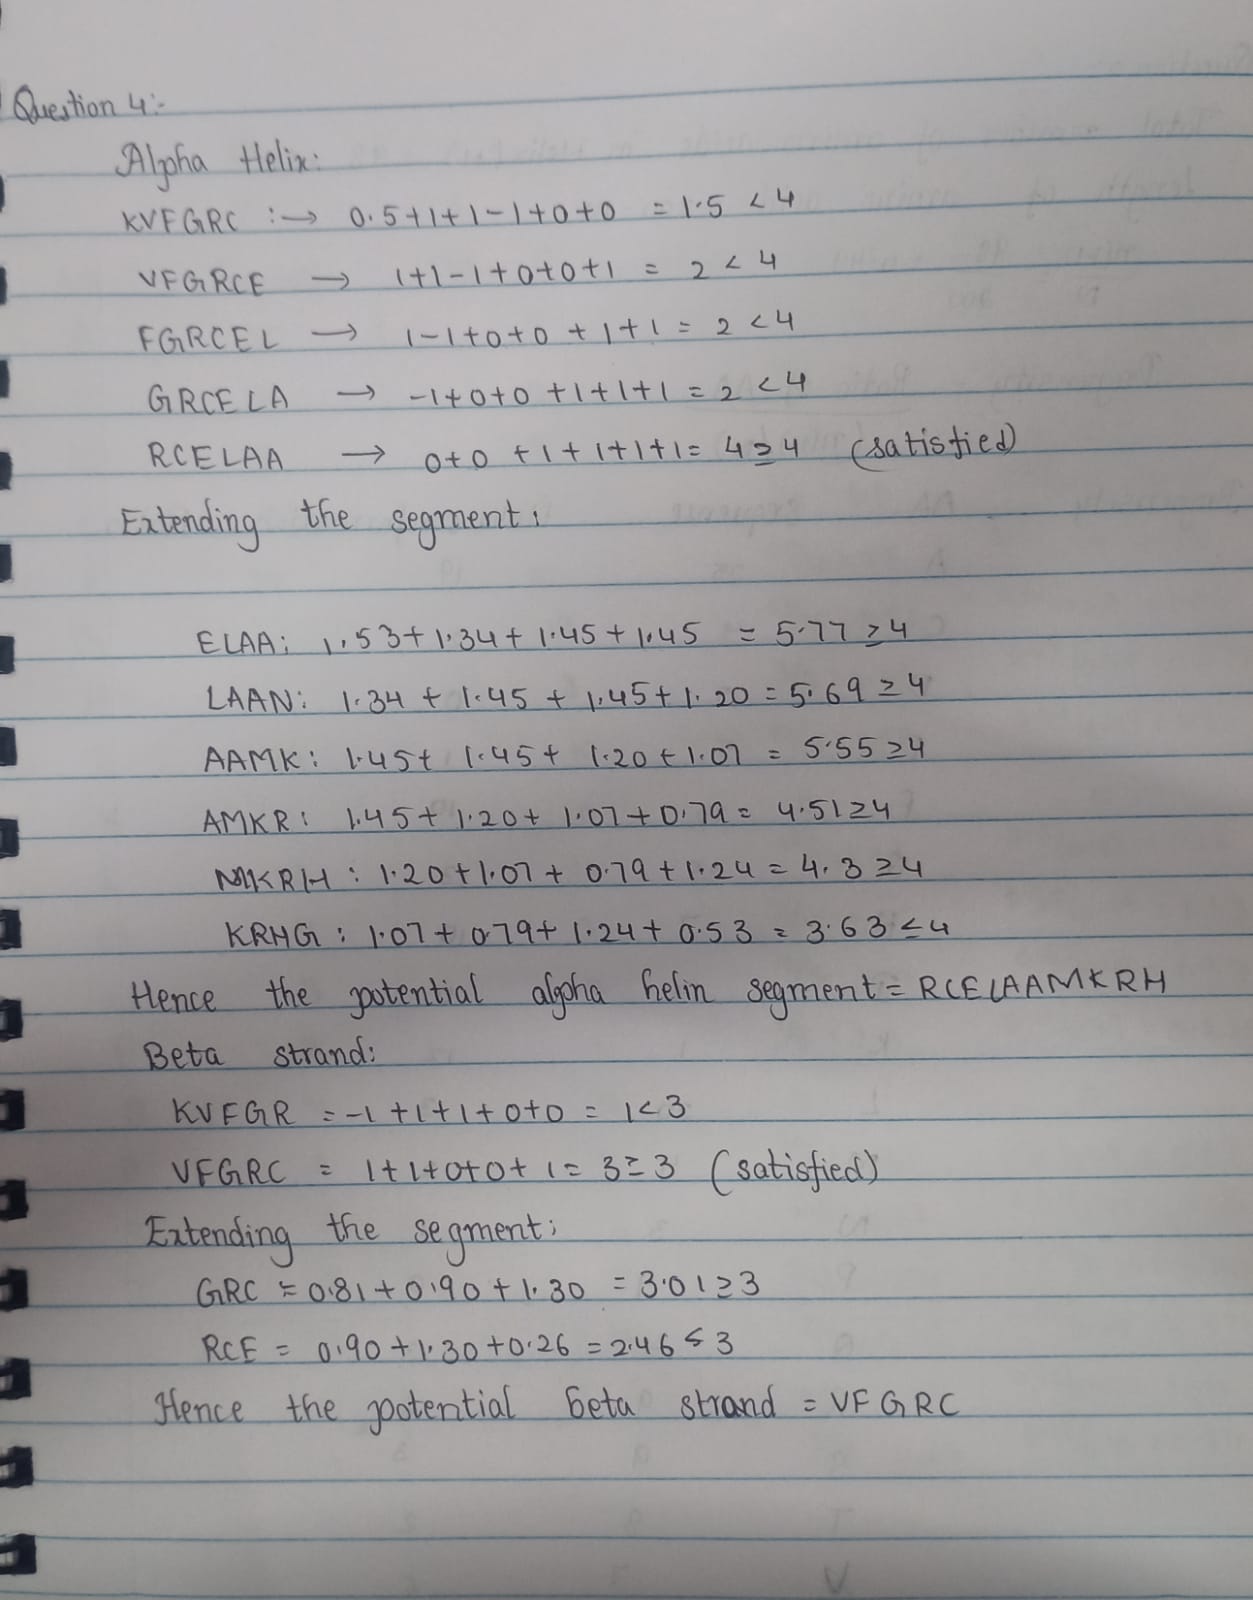 Question 4:-
Alpha Helix:
KVFGRC :→ 0.5+1+1-1+0+0 = 1.5 < 4
VFGRCE → 1+1-1+0+0+1 = 2 < 4
FGRCEL → 1-1+0+0+1+1 = 2 < 4
GRCELA → -1+0+0+1+1+1 = 2 < 4
RCELAA → 0+0+1+1+1+1 = 4 ≥ 4 (satisfied)
Extending the segment:
ELAA: 1.53+1.34+1.45+1.45 = 5.77 ≥ 4
LAAN: 1.34 + 1.45 + 1.45+1.20 = 5.69 ≥ 4
AAMK: 1.45+ 1.45+ 1.20+1.07 = 5.55 ≥ 4
AMKR: 1.45+1.20+ 1.07+0.79 = 4.51 ≥ 4
MKRH: 1.20+1.07+ 0.79+1.24 = 4.3 ≥ 4
KRHG: 1.07+ 0.79+ 1.24+ 0.53 = 3.63 ≤ 4
Hence the potential alpha helin segment = RCELAAMKRH
Beta strand:
KVFGR = -1+1+1+0+0 = 1 < 3
VFGRC = 1+1+0+0+1 = 3 ≥ 3 (satisfied)
Extending the segment:
GRC = 0.81+0.90+1.30 = 3.01 ≥ 3
RCE = 0.90+1.30+0.26 = 2.46 ≤ 3
Hence the potential beta strand = VFGRC